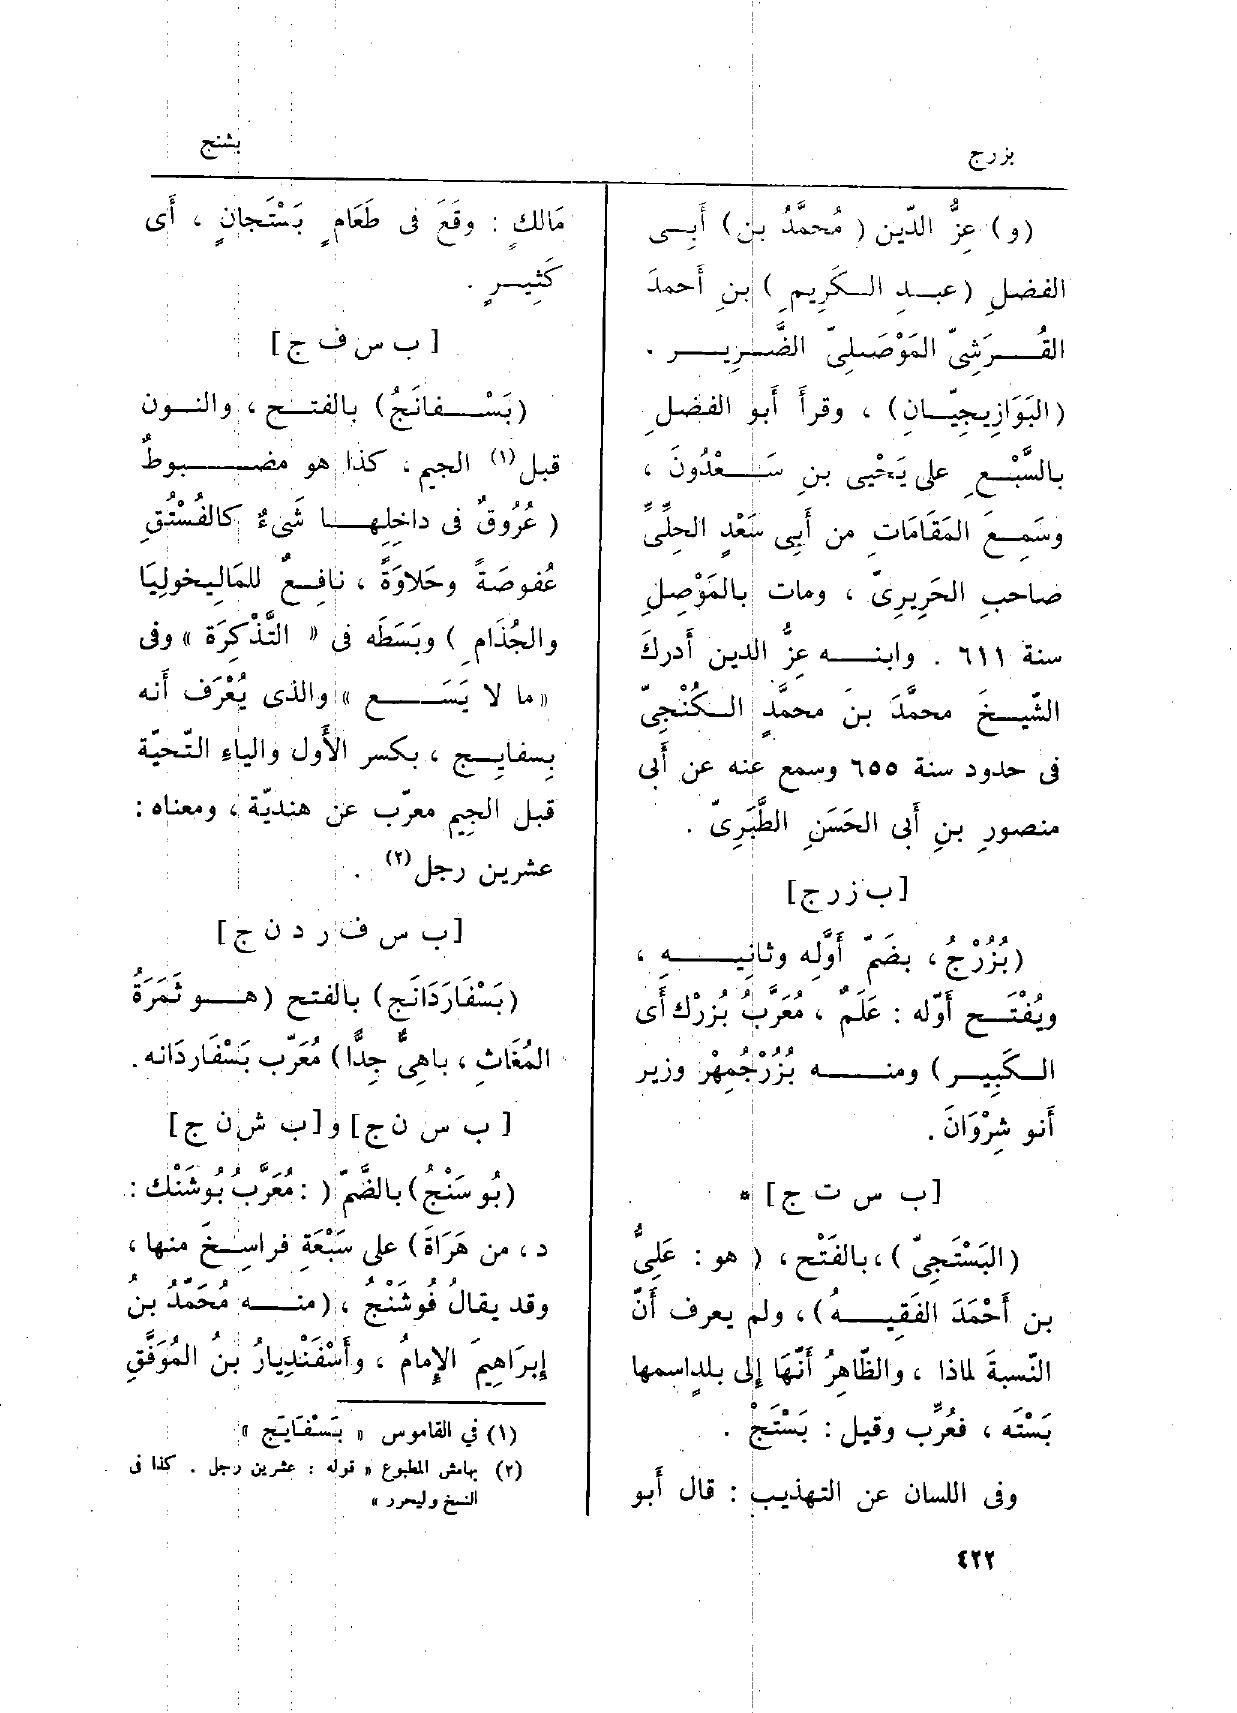 بزرج
بشنج
(و) عِزُّ الدّين (مُحمَّدُ بن) أَبِى
الفضلِ (عبدِ الكَرِيمِ) بنِ أَحمدَ
القُرَشِىّ المَوْصَلِىّ الضَّرِير .
(البَوَازِيجِيّانِ) ، وقرأَ أَبو الفضلِ
بالسَّبْعِ على يَحْيى بنِ سَعْدُونَ ،
وسَمِعَ المَقَامَاتِ من أَبِى سَعْدٍ الحِلِّىِّ
صاحبِ الحَرِيرِىّ ، ومات بالمَوْصِلِ
سنة ٦١١ . وابنه عِزُّ الدين أَدركَ
الشّيخَ محمَّدَ بنَ محمَّدٍ الكُنْجِىّ
فى حدود سنة ٦٥٥ وسمع عنه عن أَبى
منصورِ بنِ أَبى الحَسَنِ الطَّبَرِىّ .
[ب ز ر ج]
(بُزُرْجُ ، بضَمّ أَوَّله وثانِيهِ ،
ويُفْتَح أَوّله : عَلَمٌ ، مُعَرَّبُ بُزرْك أَى
الكَبِير) ومنه بُزُرْجُمِهْر وزير
أَنو شِرْوَانَ .
[ب س ت ج] *
(البَسْتَجِىّ) ، بالفَتْح ، (هو : عَلِىُّ
بن أَحْمَدَ الفَقِيهُ) ، ولم يعرف أَنّ
النّسبةَ لماذا ، والظّاهِرُ أَنّهَا إِلى بلدٍ اسمها
بَسْتَه ، فعُرِّب وقيل : بَسْتَجْ .
وفى اللسان عن التهذيب : قال أَبو
مَالكٍ : وقَعَ فى طَعَامٍ بَسْتَجانٍ ، أَى
كَثِيرٍ .
[ب س ف ج]
(بَسْفانَجُ) بالفتح ، والنون
قبل(١) الجيم ، كذا هو مضبوطٌ
(عُرُوقٌ فى داخِلِها شَىءٌ كالفُسْتُقِ
عُفوصَةً وحَلاوَةً ، نافِعٌ للمَالِيخولِيَا
والجُذَامِ) وبَسَطَه فى « التَّذْكِرَة » وفى
« ما لا يَسَع » والذى يُعْرَف أَنه
بِسفايِج ، بكسر الأَول والياءِ التّحيّة
قبل الجِيم معرّب عن هنديّة ، ومعناه :
عشرين رجل(٢) .
[ب س ف ر د ن ج]
(بَسْفَارَدَانَج) بالفتح (هو ثَمَرَةُ
المُغَاثِ ، باهِىٌّ جِدًّا) مُعَرّب بَسْفَاردَانه .
[ب س ن ج] و[ب ش ن ج]
(بُوسَنْجُ) بالضَّمّ ( : مُعَرَّبُ بُوشَنْك :
د ، من هَرَاةَ) على سَبْعَةِ فراسِخَ منها ،
وقد يقالُ فُوشَنْج ، (منه مُحَمّدُ بن
إِبرَاهِيمَ الإِمامُ ، وأَسْفَنْدِيارُ بنُ المُوَفَّقِ
(١) في القاموس « بَسْفَايَج »
(٢) بهامش المطبوع « قوله : عشرين رجل . كذا فى
النسخ وليحرر »
٤٢٢